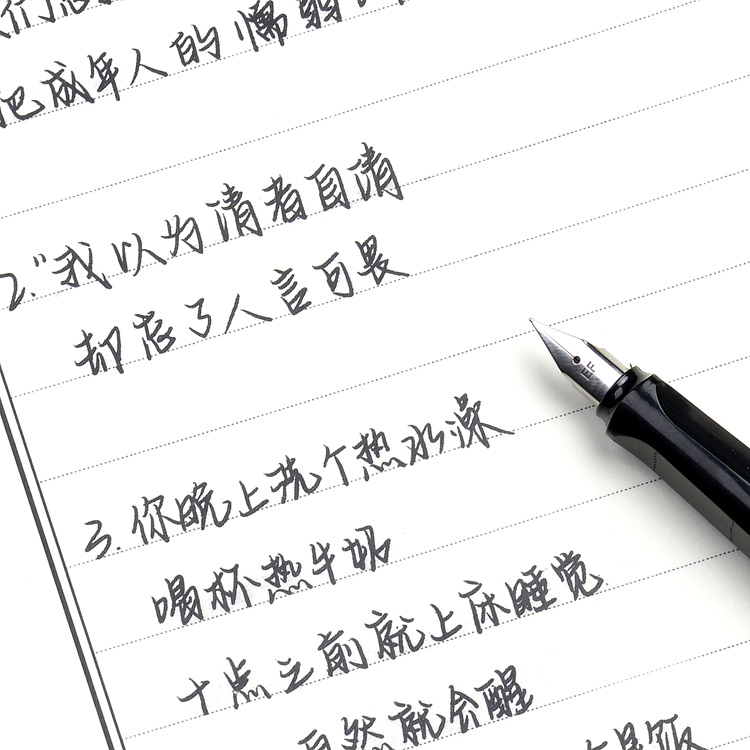 把成年人的懦弱
2."我以为清者自清
却忘了人言可畏
3.你晚上洗个热水澡
喝杯热牛奶
十点之前就上床睡觉
自然就会醒
EF